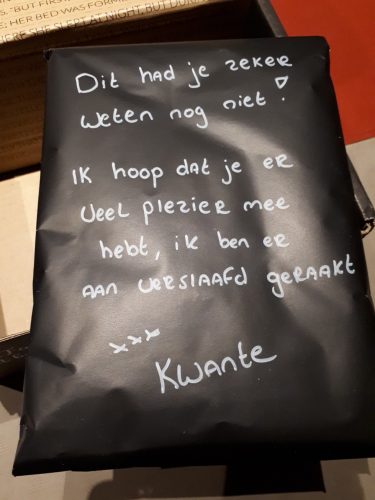 "BUT FIRS
: HER BED WAS FORMI
ERE SHE SLEPT AT NIGHT, BUT DU
Dit had je zeker
weten nog niet!
Ik hoop dat je er
veel plezier mee
hebt, ik ben er
aan verslaafd geraakt
xxx
Kwante